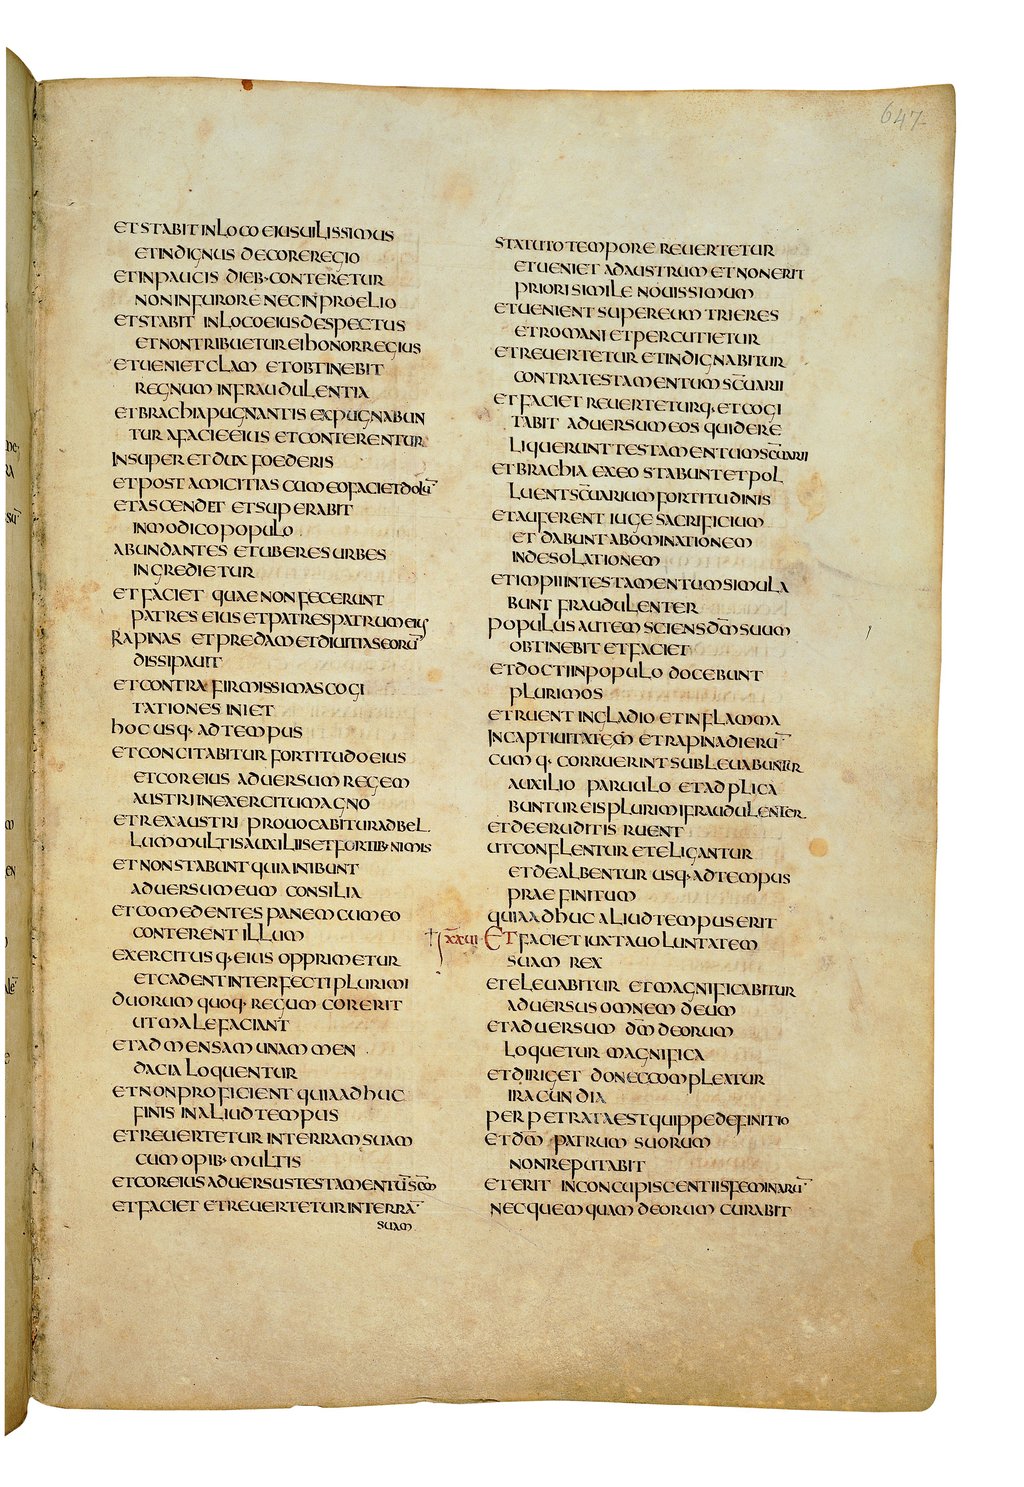 647
ET STABIT IN LOCO EIUS UILISSIMUS
ET INDIGNUS DECORE REGIO
ET IN PAUCIS DIEB· CONTERETUR
NON IN FURORE NEC IN PROELIO
ET STABIT IN LOCO EIUS DESPECTUS
ET NON TRIBUETUR EI HONOR REGIUS
ET UENIET CLAM ET OBTINEBIT
REGNUM IN FRAUDULENTIA
ET BRACHIA PUGNANTIS EXPUGNABUN
TUR A FACIE EIUS ET CONTERENTUR
INSUPER ET DUX FOEDERIS
ET POST AMICITIAS CUM EO FACIET DOLŪ
ET ASCENDET ET SUPERABIT
IN MODICO POPULO
ABUNDANTES ET UBERES URBES
INGREDIETUR
ET FACIET QUAE NON FECERUNT
PATRES EIUS ET PATRES PATRUM EIUS
RAPINAS ET PREDAM ET DIUITIAS EORŪ
DISSIPAUIT
ET CONTRA FIRMISSIMAS COGI
TATIONES INIET
HOC USQ· AD TEMPUS
ET CONCITABITUR FORTITUDO EIUS
ET COR EIUS ADUERSUM REGEM
AUSTRI IN EXERCITU MAGNO
ET REX AUSTRI PROUOCABITUR AD BEL
LUM MULTIS AUXILIIS ET FORTIB· NIMIS
ET NON STABUNT QUIA INIBUNT
ADUERSUM EUM CONSILIA
ET COMEDENTES PANEM CUM EO
CONTERENT ILLUM
EXERCITUSQ· EIUS OPPRIMETUR
ET CADENT INTERFECTI PLURIMI
DUORUM QUOQ· REGUM COR ERIT
UT MALEFACIANT
ET AD MENSAM UNAM MEN
DACIA LOQUENTUR
ET NON PROFICIENT QUIA ADHUC
FINIS IN ALIUD TEMPUS
ET REUERTETUR IN TERRAM SUAM
CUM OPIB· MULTIS
ET COR EIUS ADUERSUS TESTAMENTŪ SC̄M
ET FACIET ET REUERTETUR IN TERRĀ
SUAM
STATUTO TEMPORE REUERTETUR
ET UENIET AD AUSTRUM ET NON ERIT
PRIORI SIMILE NOUISSIMUM
ET UENIENT SUPER EUM TRIERES
ET ROMANI ET PERCUTIETUR
ET REUERTETUR ET INDIGNABITUR
CONTRA TESTAMENTUM SC̄UARII
ET FACIET REUERTETURQ· ET COGI
TABIT ADUERSUM EOS QUI DERE
LIQUERUNT TESTAMENTUM SC̄UARII
ET BRACHIA EX EO STABUNT ET POL
LUENT SC̄UARIUM FORTITUDINIS
ET AUFERENT IUGE SACRIFICIUM
ET DABUNT ABOMINATIONEM
IN DESOLATIONEM
ET IMPII IN TESTAMENTUM SIMULA
BUNT FRAUDULENTER
POPULUS AUTEM SCIENS DM̄ SUUM
OBTINEBIT ET FACIET
ET DOCTI IN POPULO DOCEBUNT
PLURIMOS
ET RUENT IN GLADIO ET IN FLAMMA
IN CAPTIUITATEM ET RAPINA DIERŪ
CUMQ· CORRUERINT SUBLEUABUNTUR
AUXILIO PARUULO ET ADPLICA
BUNTUR EIS PLURIMI FRAUDULENTER
ET DE ERUDITIS RUENT
UT CONFLENTUR ET ELIGANTUR
ET DEALBENTUR USQ· AD TEMPUS
PRAEFINITUM
QUIA ADHUC ALIUD TEMPUS ERIT
XXUII ET FACIET IUXTA UOLUNTATEM
SUAM REX
ET ELEUABITUR ET MAGNIFICABITUR
ADUERSUS OMNEM DEUM
ET ADUERSUM DM̄ DEORUM
LOQUETUR MAGNIFICA
ET DIRIGET DONEC COMPLEATUR
IRACUNDIA
PERPETRATA EST QUIPPE DEFINITIO
ET DM̄ PATRUM SUORUM
NON REPUTABIT
ET ERIT IN CONCUPISCENTIIS FEMINARŪ
NEC QUEMQUAM DEORUM CURABIT